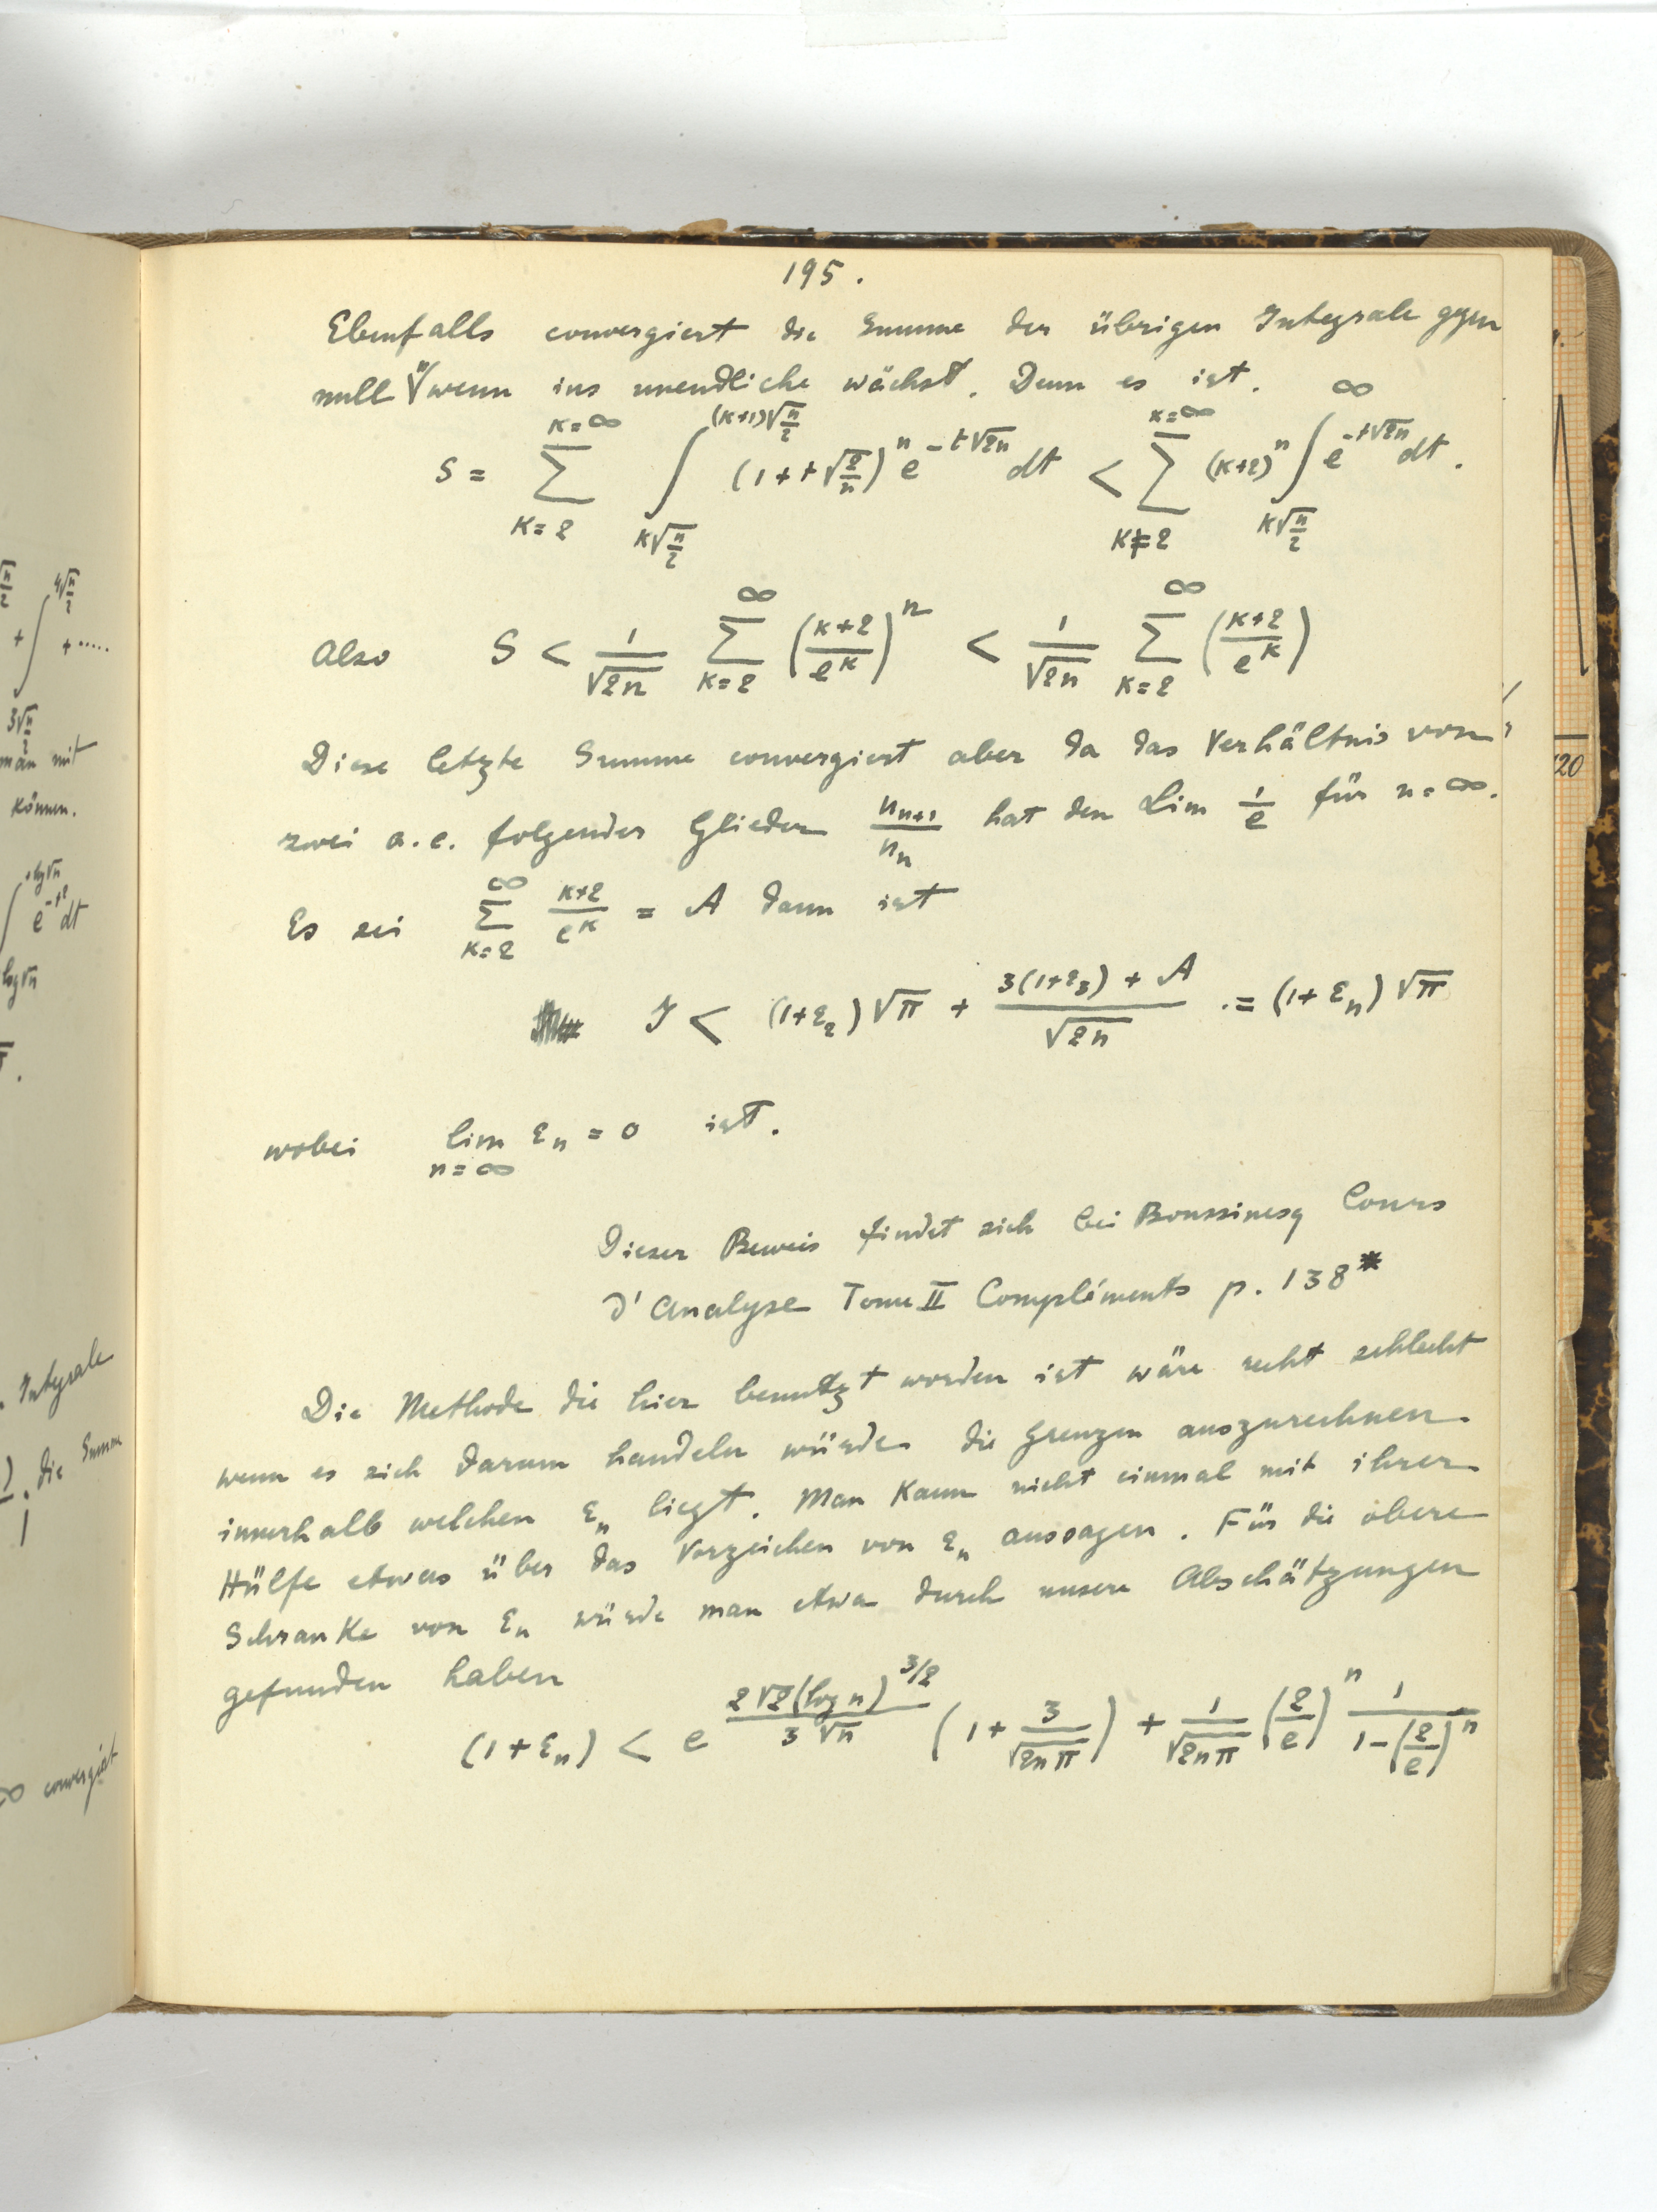 195.
Ebenfalls convergiert die Summe der übrigen Integrale gegen
null wenn n ins unendliche wächst. Denn es ist.
S = ∑_{K=2}^{K=∞} ∫_{K√(n/2)}^{(K+1)√(n/2)} (1+t√(2/n))^n e^{-t√(2n)} dt < ∑_{K=2}^{K=∞} (K+2)^n ∫_{K√(n/2)}^{∞} e^{-t√(2n)} dt.
Also S < 1/√(2n) ∑_{K=2}^{∞} ((K+2)/e^K)^n < 1/√(2n) ∑_{K=2}^{∞} ((K+2)/e^K)
Diese letzte Summe convergiert aber da das Verhältnis von
zwei a. e. folgender Glieder u_{n+1}/u_n hat den Lim 1/e für n=∞.
Es sei ∑_{K=2}^{∞} (K+2)/e^K = A dann ist
J < (1+ε_2)√π + (3(1+ε_3) + A)/√(2n) .= (1+ε_n)√π
wobei lim_{n=∞} ε_n = 0 ist.
Dieser Beweis findet sich bei Boussinesq Cours
d'Analyse Tome II Compléments p. 138*
Die Methode die hier benutzt worden ist wäre recht schlecht
wenn es sich darum handeln würde die Grenzen auszurechnen
innerhalb welchen ε_n liegt. Man kann nicht einmal mit ihrer
Hülfe etwas über das Vorzeichen von ε_n aussagen. Für die obere
Schranke von ε_n würde man etwa durch unsere Abschätzungen
gefunden haben
(1+ε_n) < e^{2√2(log n)^{3/2}/(3√n)} (1 + 3/√(2nπ)) + 1/√(2nπ) (2/e)^n 1/(1-(2/e)^n)
√(n/2) + ∫_{3√(n/2)}^{4√(n/2)} + .....
man mit
können.
∫_{log √n}^{+log √n} e^{-t²} dt
Integrale
die Summe
∞ convergiert
120